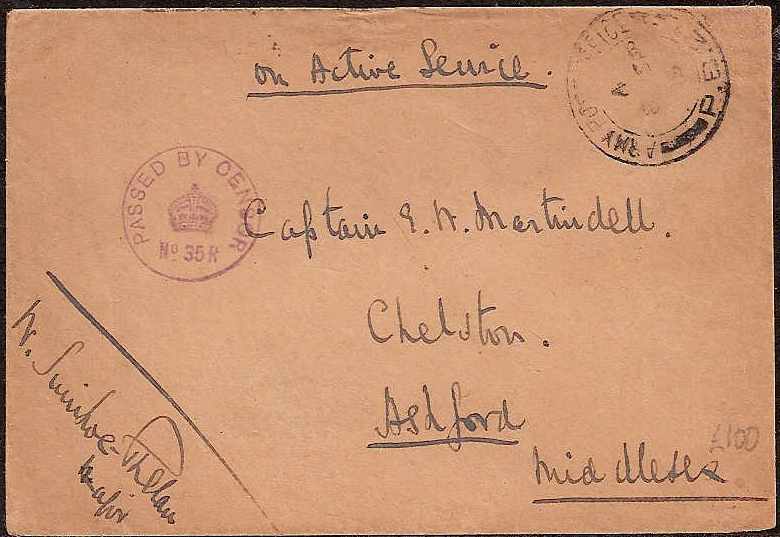 on Active Service.
ARMY
P.
A
PASSED BY CENSOR
No 35R
Captain E. W. Martindell.
Chelston.
Ashford
Middlesex
£100
W. Swinhoe-Phelan
Major